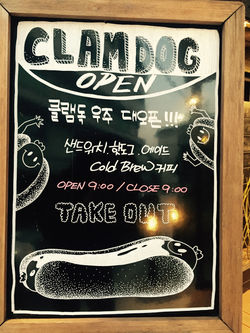 CLAM DOG
OPEN
클램독 우주 대오픈!!!
샌드위치 핫도그 에이드
Cold BREW 커피
OPEN 9:00 / CLOSE 9:00
TAKE OUT